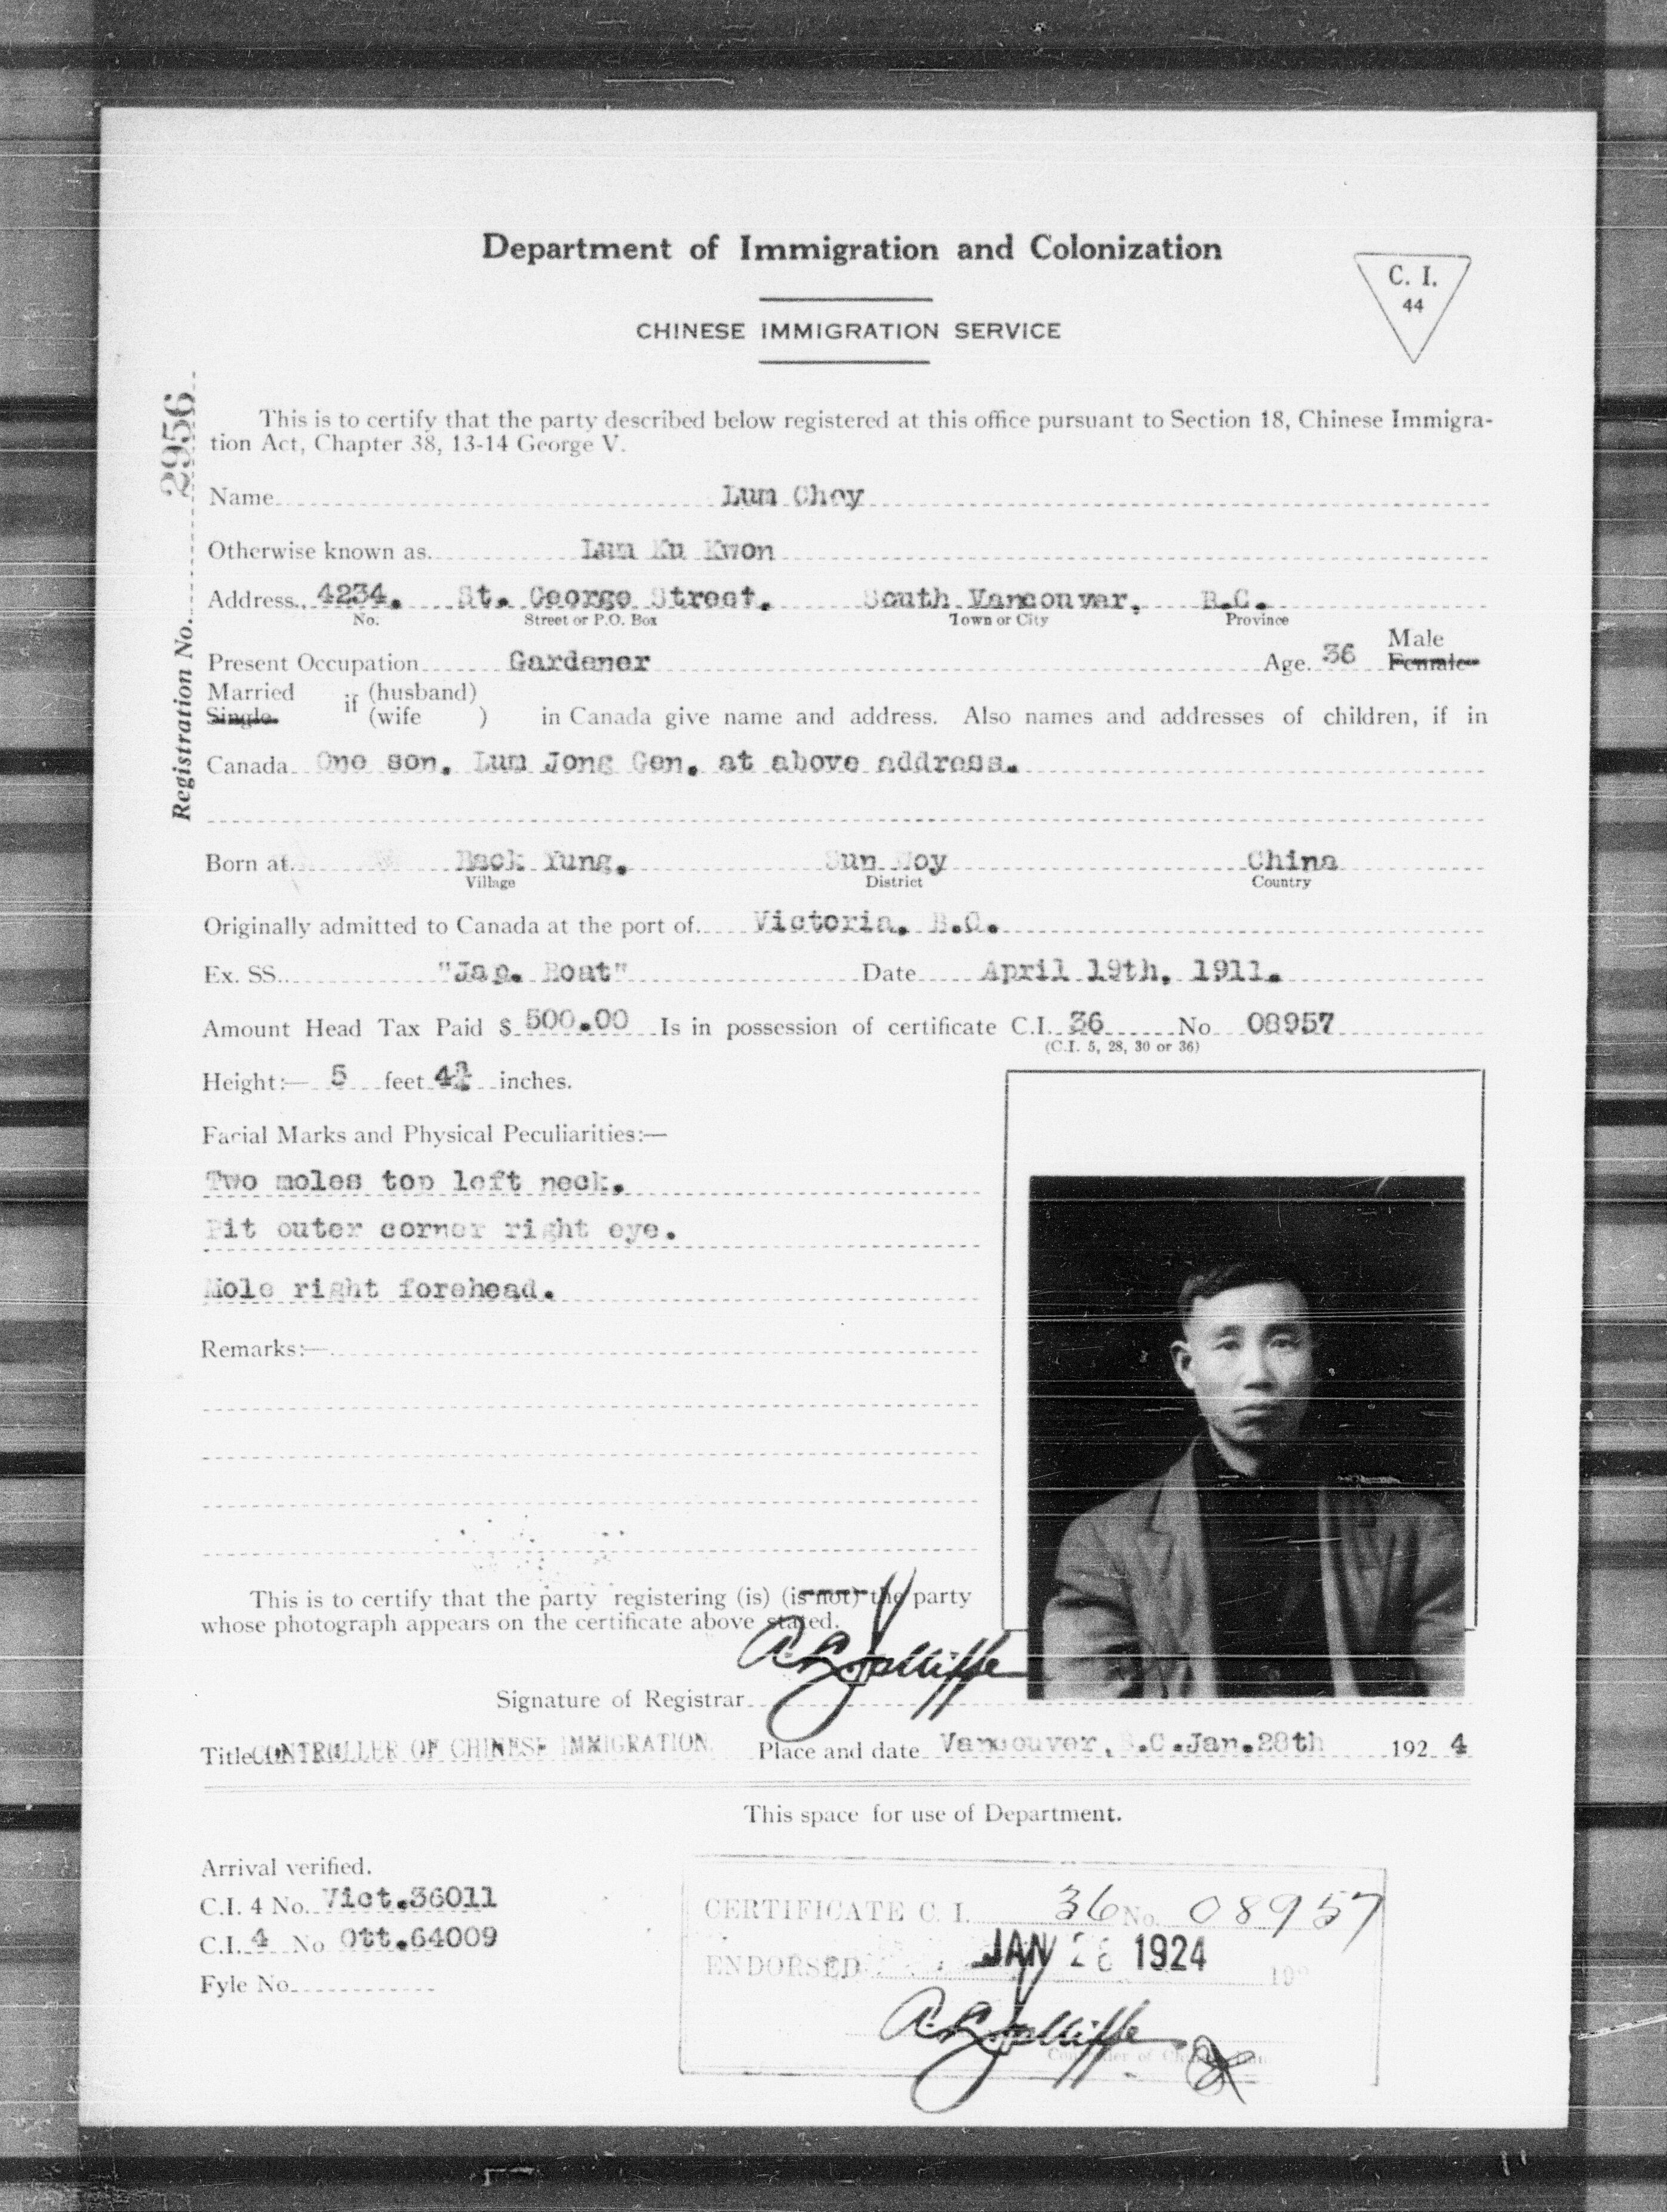 Department of Immigration and Colonization
C. I.
44
CHINESE IMMIGRATION SERVICE
Registration No. 2956
This is to certify that the party described below registered at this office pursuant to Section 18, Chinese Immigra-
tion Act, Chapter 38, 13-14 George V.
Name Lum Choy
Otherwise known as. Lum Ku Kwon
Address. 4234. St. George Street. South Vancouver. B.C.
No. Street or P.O. Box Town or City Province
Present Occupation Gardener Age. 36 Male Female
Married Single if (husband) (wife ) in Canada give name and address. Also names and addresses of children, if in
Canada One son. Lum Jong Gen. at above address.
Born at Back Yung. Sun Woy China
Village District Country
Originally admitted to Canada at the port of. Victoria. B.C.
Ex. SS. "Jap. Boat" Date April 19th, 1911.
Amount Head Tax Paid $ 500.00 Is in possession of certificate C.I. 36 No 08957
(C.I. 5, 28, 30 or 36)
Height:— 5 feet 4¾ inches.
Facial Marks and Physical Peculiarities:—
Two moles top left neck.
Pit outer corner right eye.
Mole right forehead.
Remarks:—
This is to certify that the party registering (is) (is not) the party
whose photograph appears on the certificate above stated.
Signature of Registrar A. L. Jolliffe
Title CONTROLLER OF CHINESE IMMIGRATION. Place and date Vancouver, B.C. Jan. 28th 192 4
This space for use of Department.
Arrival verified.
C.I. 4 No. Vict. 36011
C.I. 4 No Ott. 64009
Fyle No.
CERTIFICATE C. I. 36 No. 08957
ENDORSED JAN 28 1924 19
A. L. Jolliffe